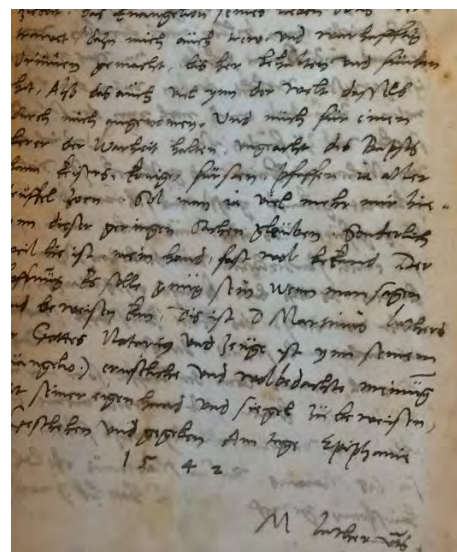 das Euangelion seines lieben
trawet, dazu mich auch trew und warhafftig
drinnen gemacht, bis her behalten und funden
hat, Also das auch viel ynn der welt dasselb
durch mich angenomen, Und mich fur einen
lerer der Warheit halten, ungeacht des Bapsts
keisers, konige, fursten, pfaffen, ia aller
teuffel zorn, Sol man ia viel mehr mir hie
ynn dieser geringen sachen gleuben, Sonderlich
weil hie ist mein hand, fast wol bekand, Der
hoffnung, Es solle gnug sein, wenn man sagen
und beweisen kan, Dis ist D Martinus Luthers
Gottes Notarius und zeuge ist ynn seinem
Euangelio) ernstliche und wolbedachte meinung
mit seiner eigen hand und siegel zu beweisen,
Geschehen und gegeben Am tage Epiphanie
1542
M Luther